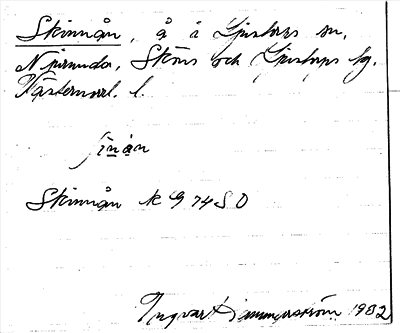 Skinnån, å i Ljustorps sn,
Njurunda, Sköns och Ljustorps tg.
Västernorrl. l.
ʃinån
Skinnån k 974SO
Ingvar 1932